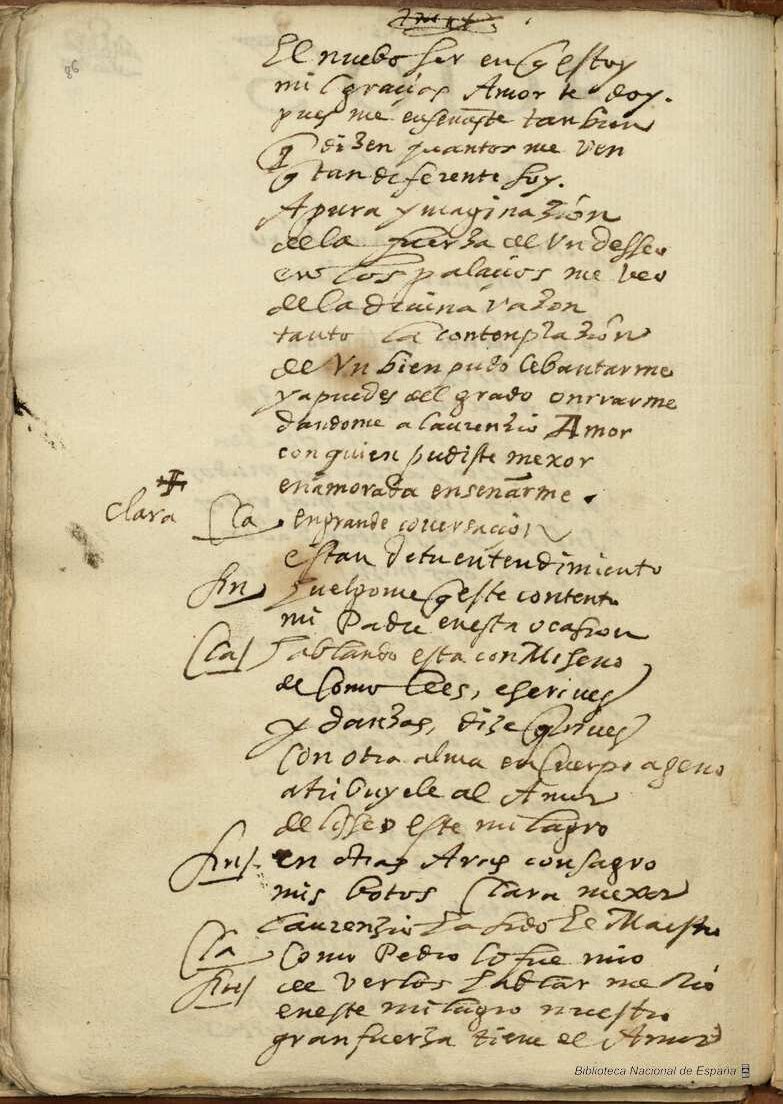 86
El nuebo ser en q̃ estoy
mil gracias Amor te doy.
pues me enseñaste tanbien
q̃ dizen quantos me ven
q̃ tan deferente soy.
Apura ymaginazión
de la fuerza de Un desseo
en los palacios me veo
de la divina razon
tanto la contenplazión
de Un bien pudo lebantarme
ya puedes del grado onrrarme
dandome a laurenzio Amor
con quien pudiste mexor
enamorada enseñarme.
Clara Cla en grande conversación
estan de tu entendimiento
fin huelgome q̃ este contento
mi Padre en esta ocasion
Cla hablando esta con Miseno
de como lees, escrives
y danzas, dize q̃ vives
con otra alma en cuerpo ageno
atribuyele al Amor
de liseo este milagro
fin en otras Aras consagro
mis botos Clara mexor
laurenzio ha sido el Maestro
Cla Como Pedro lo fue mio
fin de verlos hablar me rio
en este milagro nuestro
gran fuerza tiene el Amor
Biblioteca Nacional de España